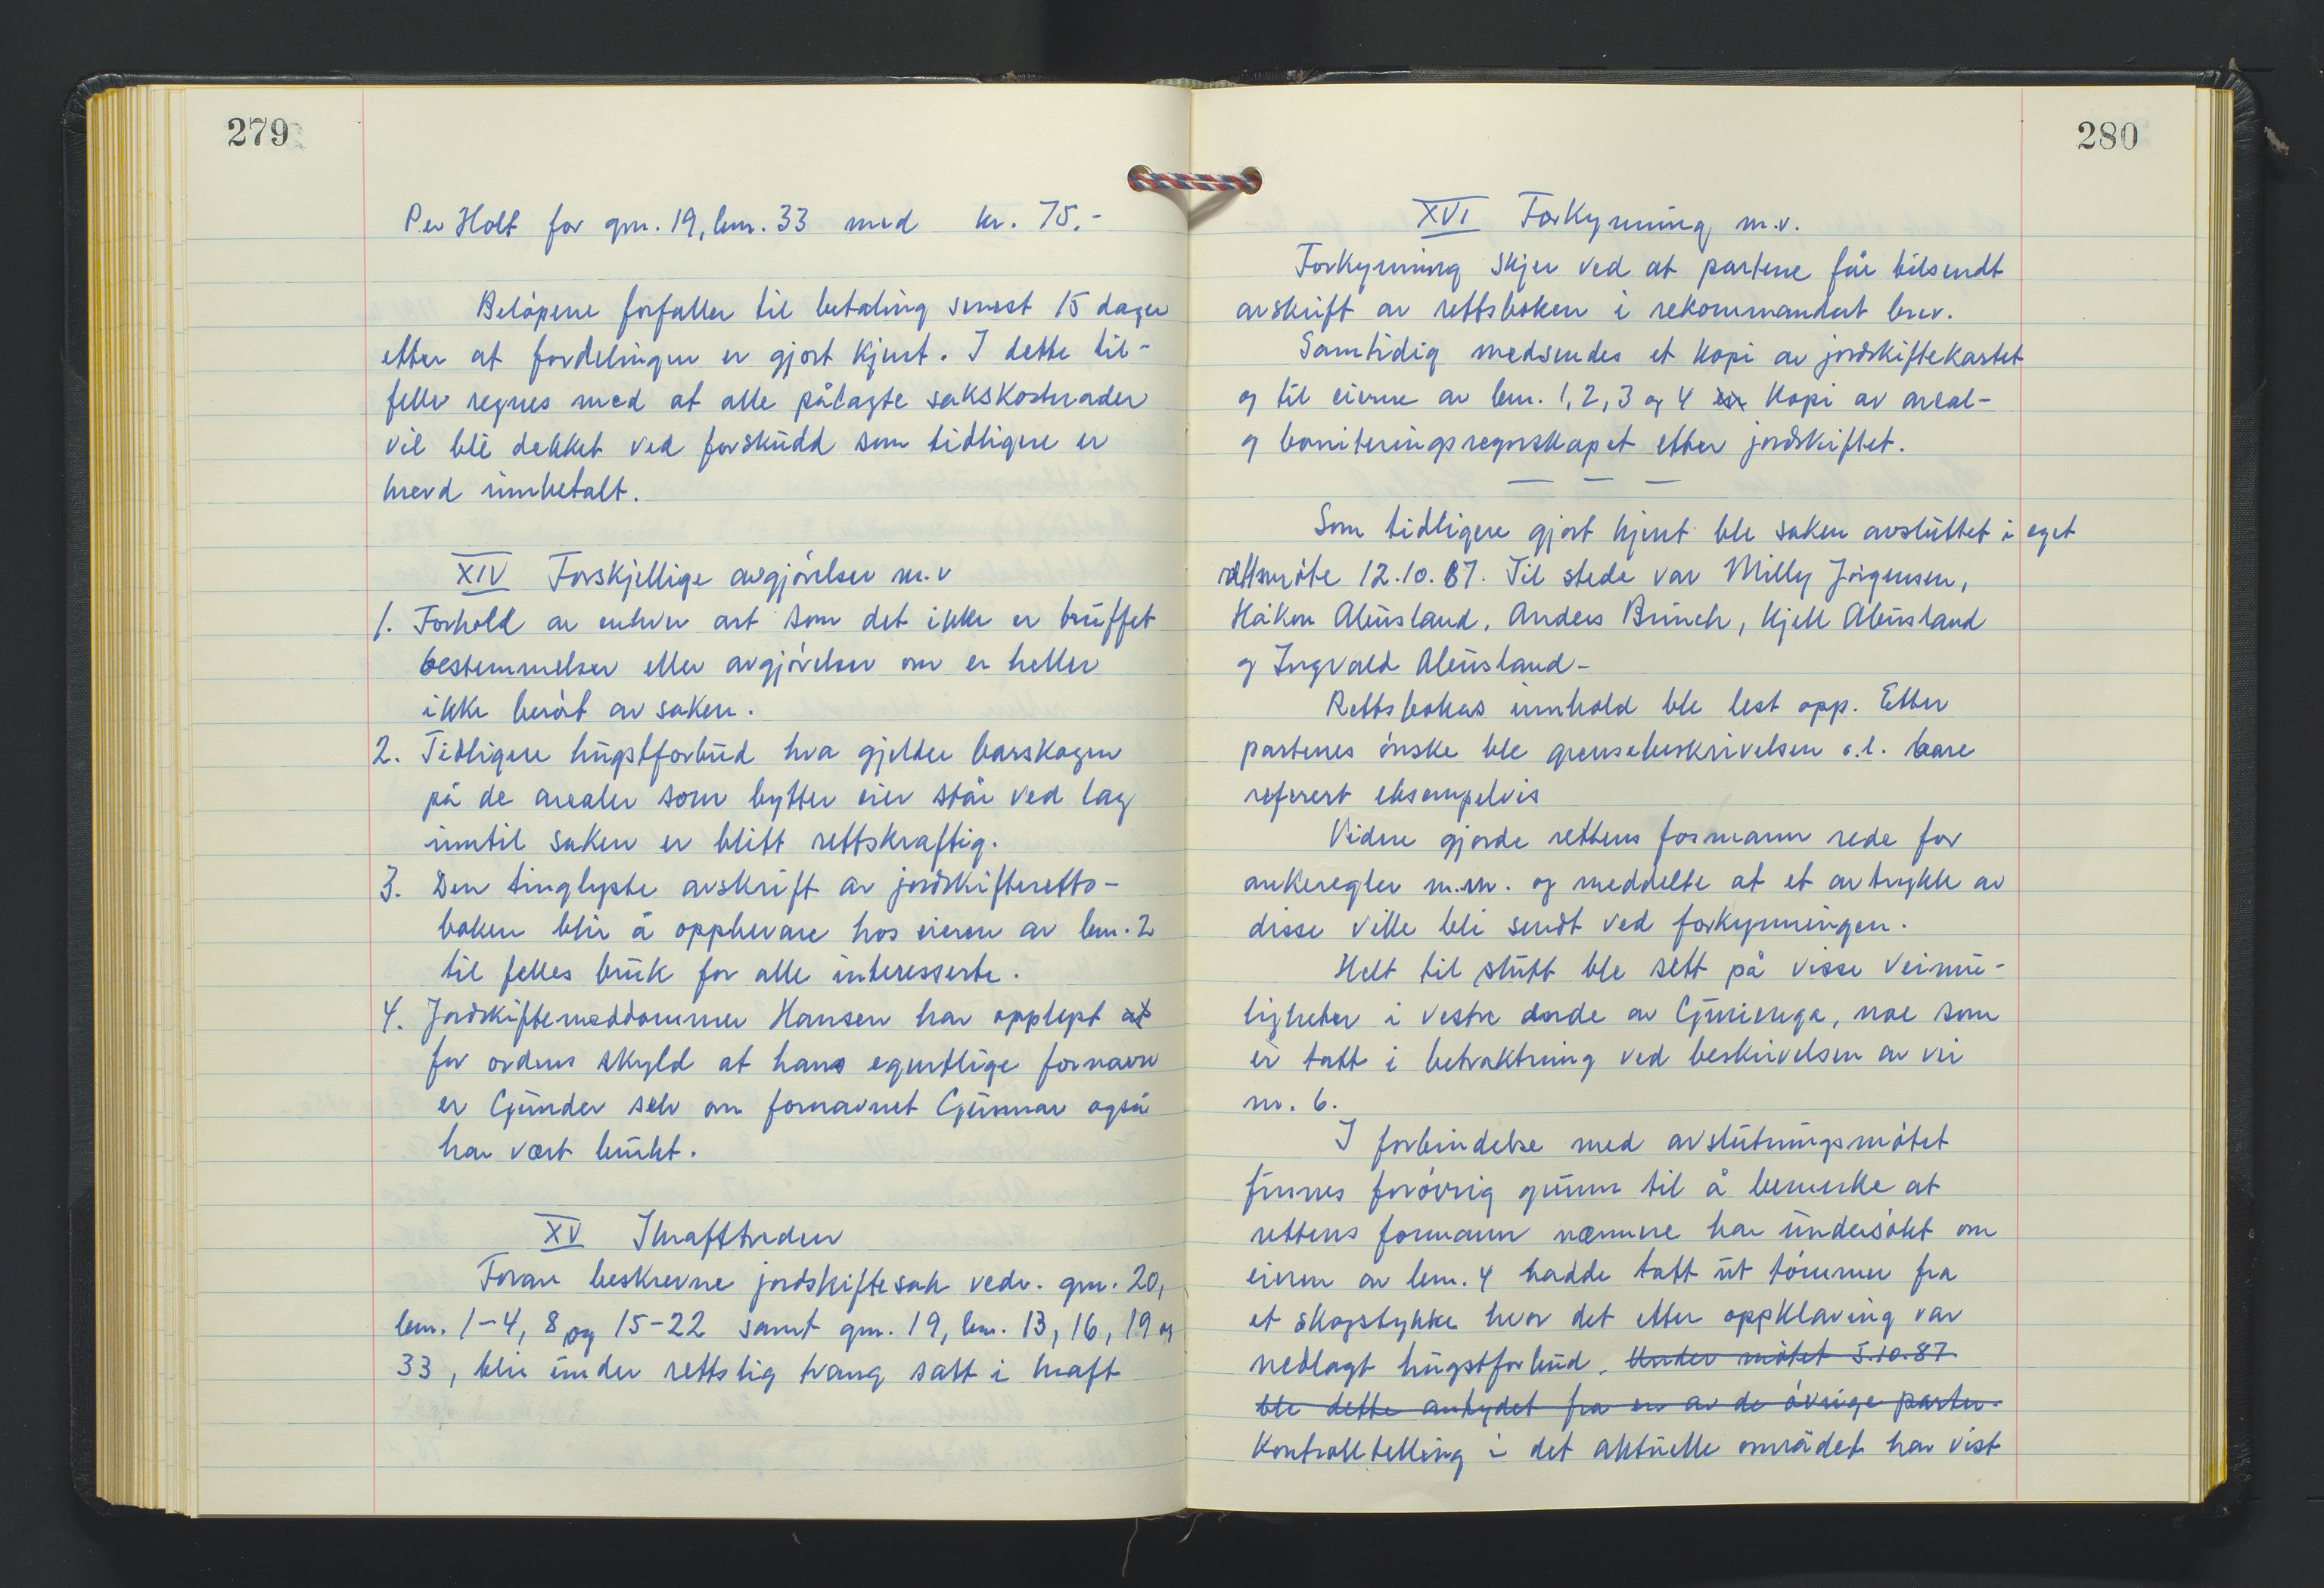 279
Per Holt for gnr. 19, bnr. 33 med kr. 75.-
Beløpene forfaller til betaling senest 15 dager
etter at fordelingen er gjort kjent. I dette til-
felle regnes med at alle pålagte sakskostnader
vil bli dekket ved forskudd som tidligere er
krevd innbetalt.
XIV Forskjellige avgjørelser m.v
1. Forhold av enhver art som det ikke er truffet
bestemmelser eller avgjørelser om er heller
ikke berørt av saken.
2. Tidligere hugstforbud hva gjelder barskogen
på de arealer som bytter eier står ved lag
inntil saken er blitt rettskraftig.
3. Den tinglyste avskrift av jordskifteretts-
boken blir å oppbevare hos eieren av bnr. 2
til felles bruk for alle interesserte.
4. Jordskiftemeddommer Hansen har opplyst at
for ordens skyld at hans egentlige fornavn
er Gunder selv om fornavnet Gunnar også
har vært brukt.
XV Ikrafttreden
Foran beskrevne jordskiftesak vedr. gnr. 20,
bnr. 1-4, 8 og 15-22 samt gnr. 19, bnr. 13, 16, 19 og
33, blir under rettslig tvang satt i kraft
280
XVI Forkynning m.v.
Forkynning skjer ved at partene får tilsendt
avskrift av rettsboken i rekommandert brev.
Samtidig medsendes et kopi av jordskiftekartet
og til eierne av bnr. 1, 2, 3 og 4 kopi av areal-
og boniteringsregnskapet etter jordskiftet.
— — —
Som tidligere gjort kjent ble saken avsluttet i eget
rettsmøte 12.10.87. Til stede var Milly Jørgensen,
Håkon Abusland, Anders Brunch, Kjell Abusland
og Ingvald Abusland-
Rettsbokas innhold ble lest opp. Etter
partenes ønske ble grensebeskrivelsen o.l. bare
referert eksempelvis
Videre gjorde rettens formann rede for
ankeregler m.m. og meddelte at et avtrykk av
disse ville bli sendt ved forkynningen.
Helt til slutt ble sett på visse veimu-
ligheter i vestre ende av Gunienga, noe som
er tatt i betraktning ved beskrivelsen av vei
nr. 6.
I forbindelse med avslutningsmøtet
finnes forøvrig grunn til å bemerke at
rettens formann nærmere har undersøkt om
eieren av bnr. 4 hadde tatt ut tømmer fra
et skogstykke hvor det etter oppklaring var
nedlagt hugstforbud. Under møtet 5.10.87
ble dette antydet fra en av de øvrige parter.
Kontrolltelling i det aktuelle området har vist